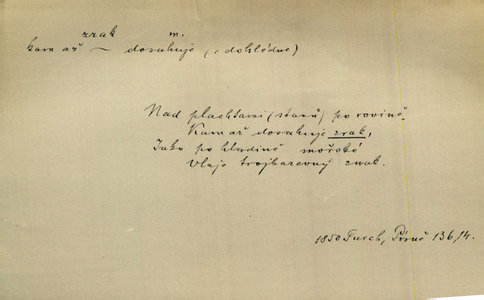 zrak m.
kam až ~ dosahuje (: dohlédne)
Nad plachtami (stanů) po rovině,
Kam až dosahuje zrak,
Jako po hladině mořské
Vlaje trojbarevný znak.
1850 Furch, Písně 136/4.